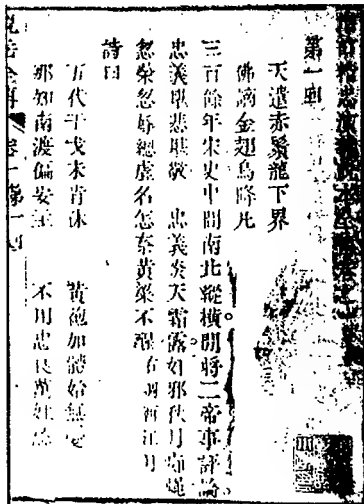 增訂精忠演義說本全傳卷之一
第一回
天遣赤鬚龍下界
佛謫金翅鳥降凡
三百餘年宋史中間南北縱橫閒將二帝事評論
忠義堪悲堪敬　忠義炎天霜露奸邪秋月痴蠅
忽榮忽辱總虛名怎奈黃粱不醒　右調西江月
詩曰
五代干戈未肯休　黃袍加體始無憂
那知南渡偏安主　不用忠良萬姓愁
說岳全傳　卷一第一回